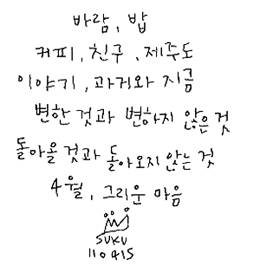 바람, 밥
커피, 친구, 제주도
이야기, 과거와 지금
변한 것과 변하지 않은 것
돌아올 것과 돌아오지 않는 것
4월, 그리운 마음
SUKU
110415